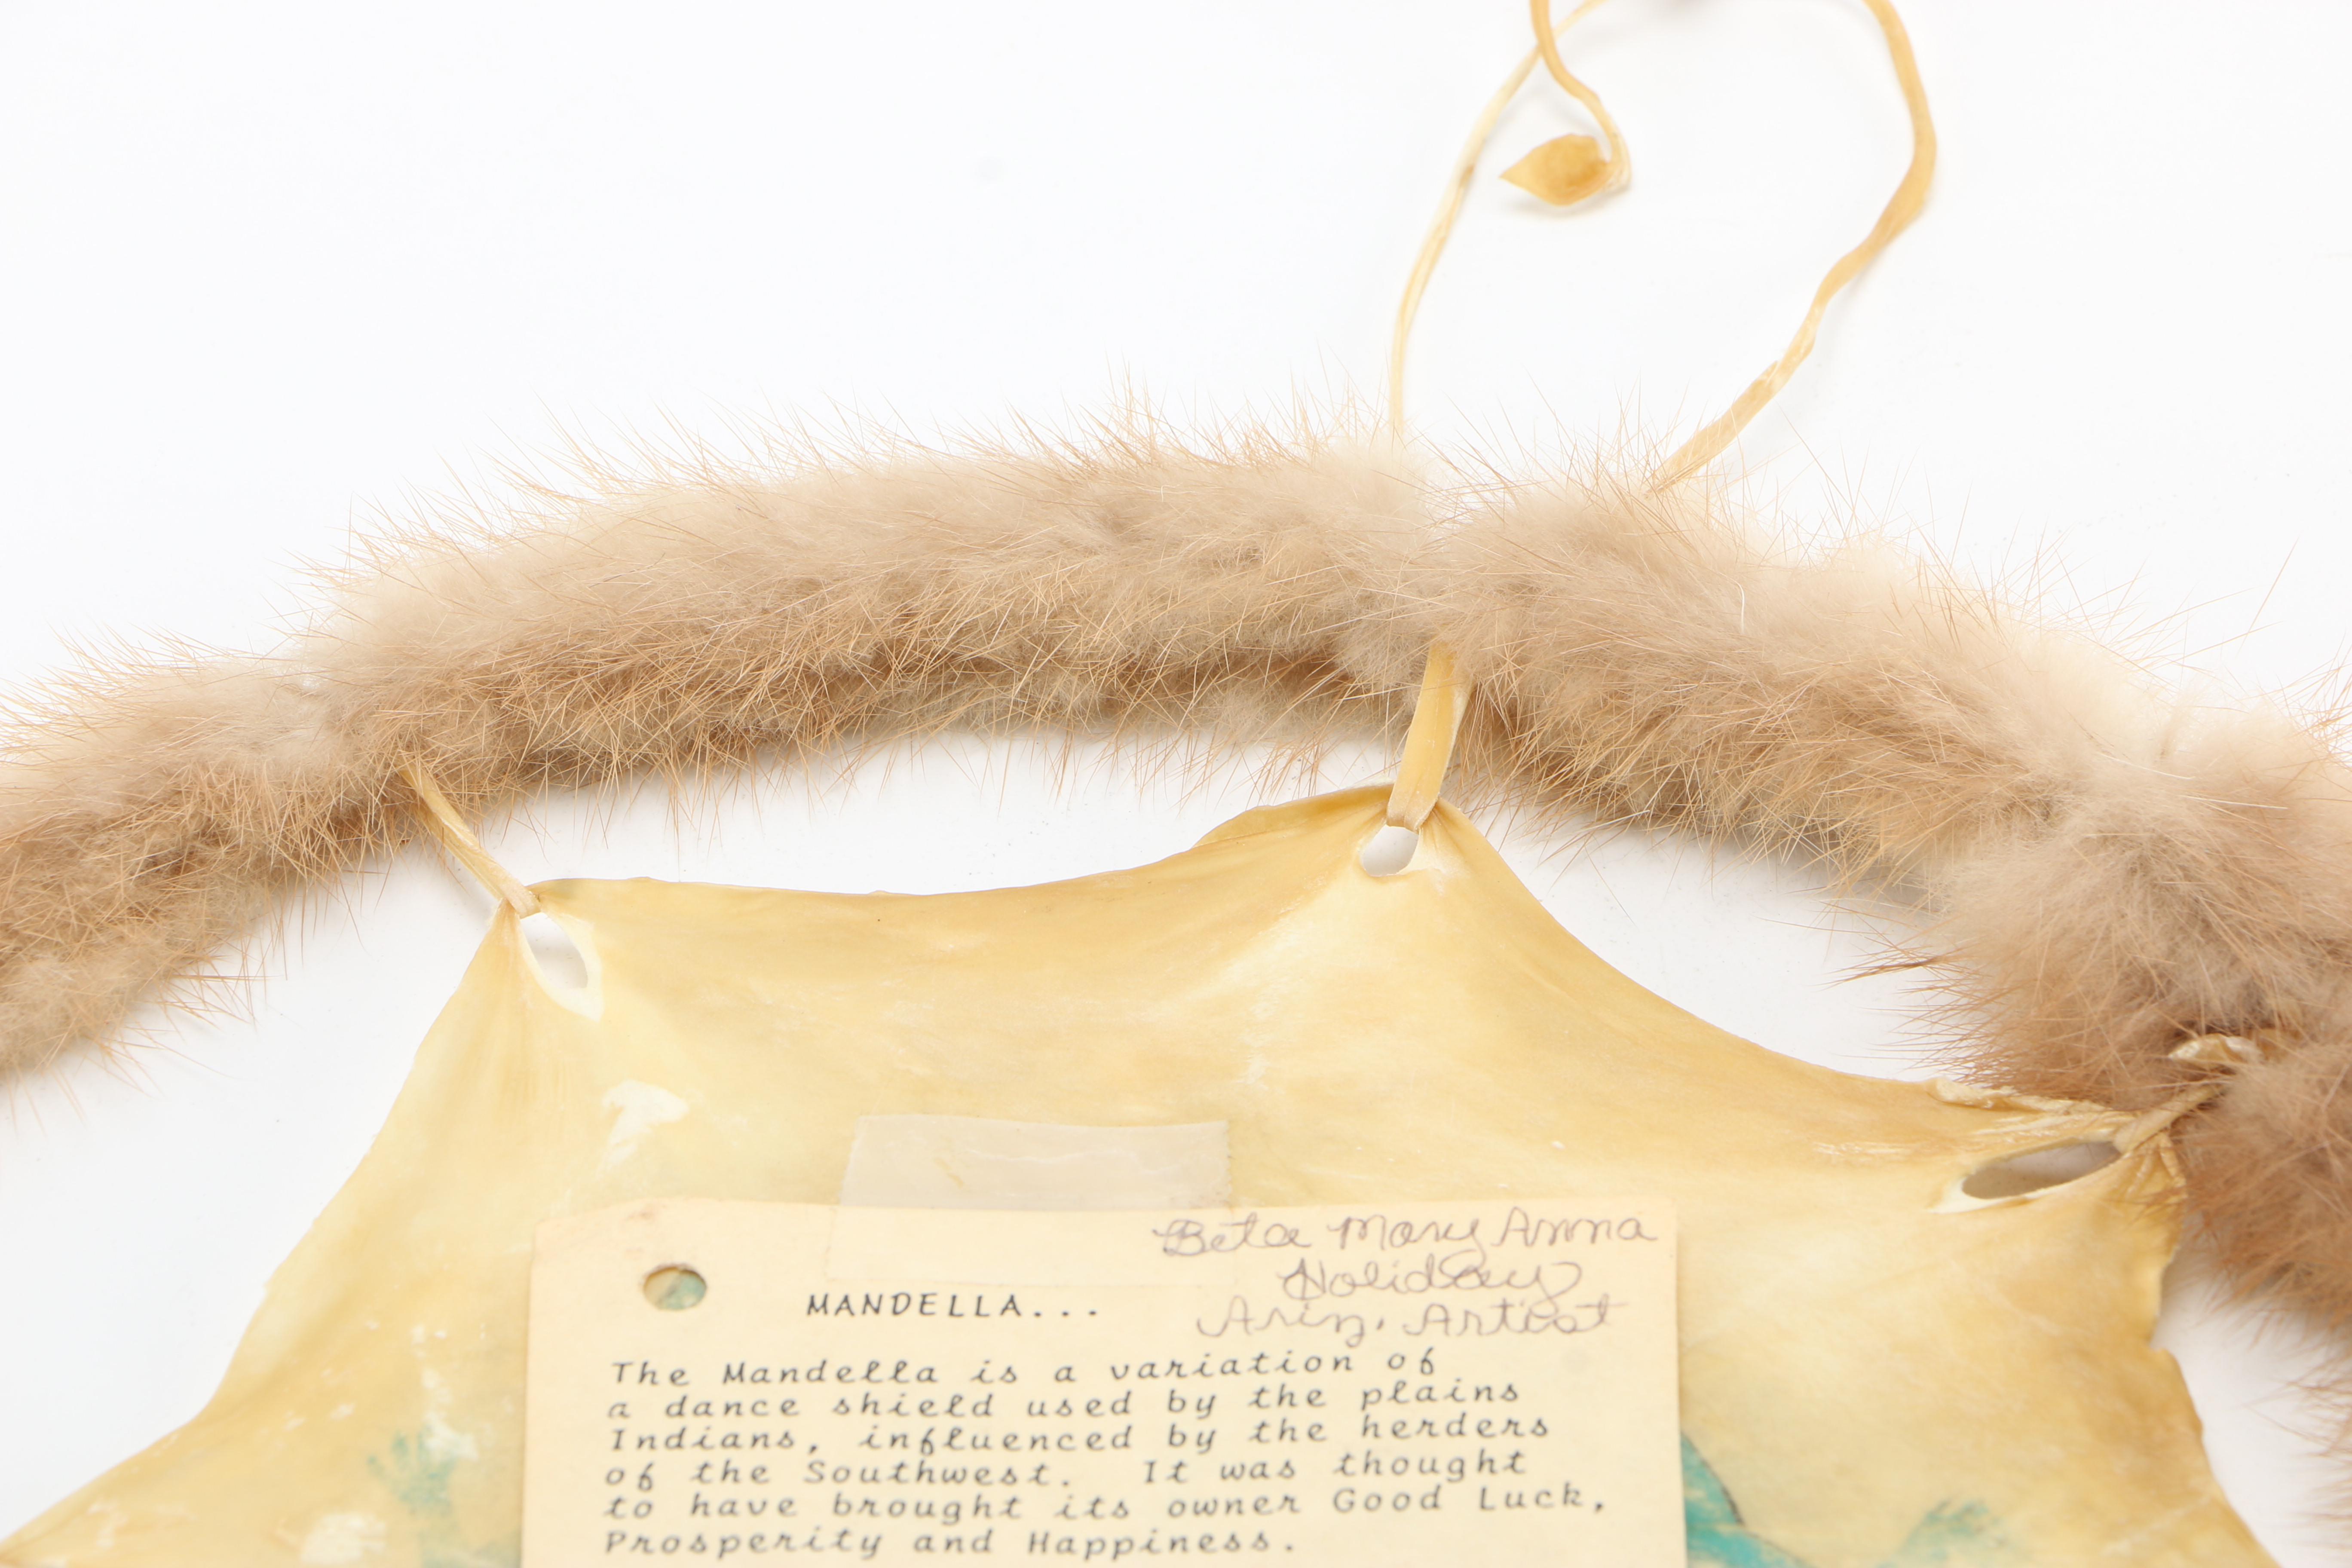 Beta Mary Anna
Holiday
Ariz. Artist
MANDELLA...
The Mandella is a variation of
a dance shield used by the plains
Indians, influenced by the herders
of the Southwest. It was thought
to have brought its owner Good Luck,
Prosperity and Happiness.